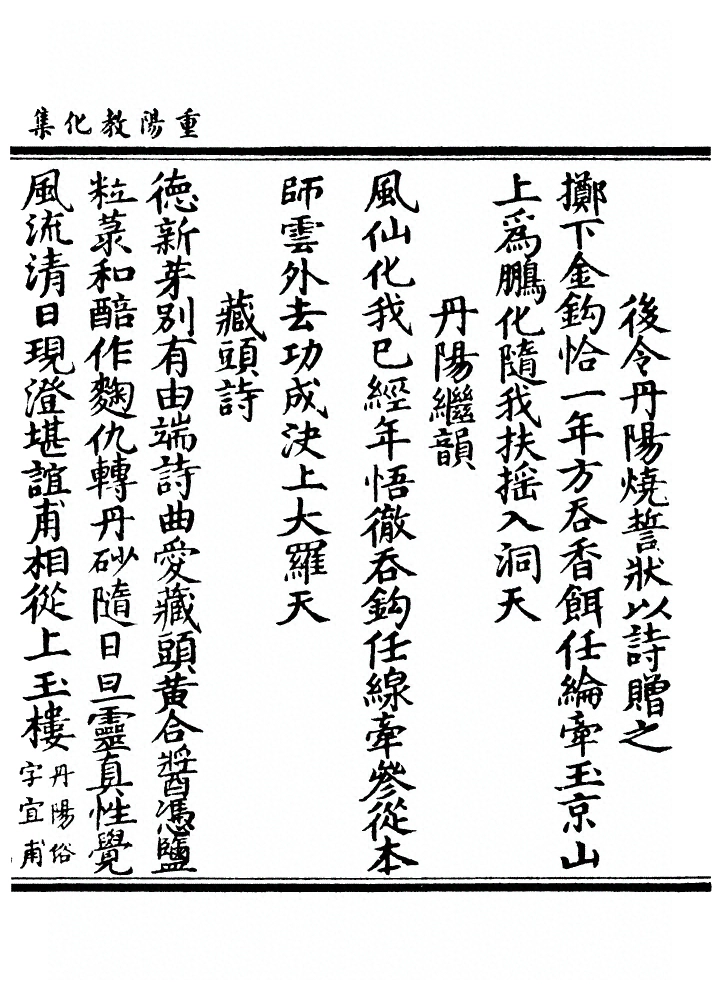 重陽教化集
後令丹陽燒誓狀以詩贈之
擲下金鈎恰一年方吞香餌任綸牽玉京山
上爲鵬化隨我扶摇入洞天
丹陽繼韻
風仙化我已經年悟徹吞鈎任線牽參從本
師雲外去功成決上大羅天
藏頭詩
德新芽別有由端詩曲愛藏頭黄合醬憑鹽
粒菉和醅作麴仇轉丹砂隨日旦靈真性覺
風流清日現澄堪誼甫相從上玉樓丹陽俗
字宜甫